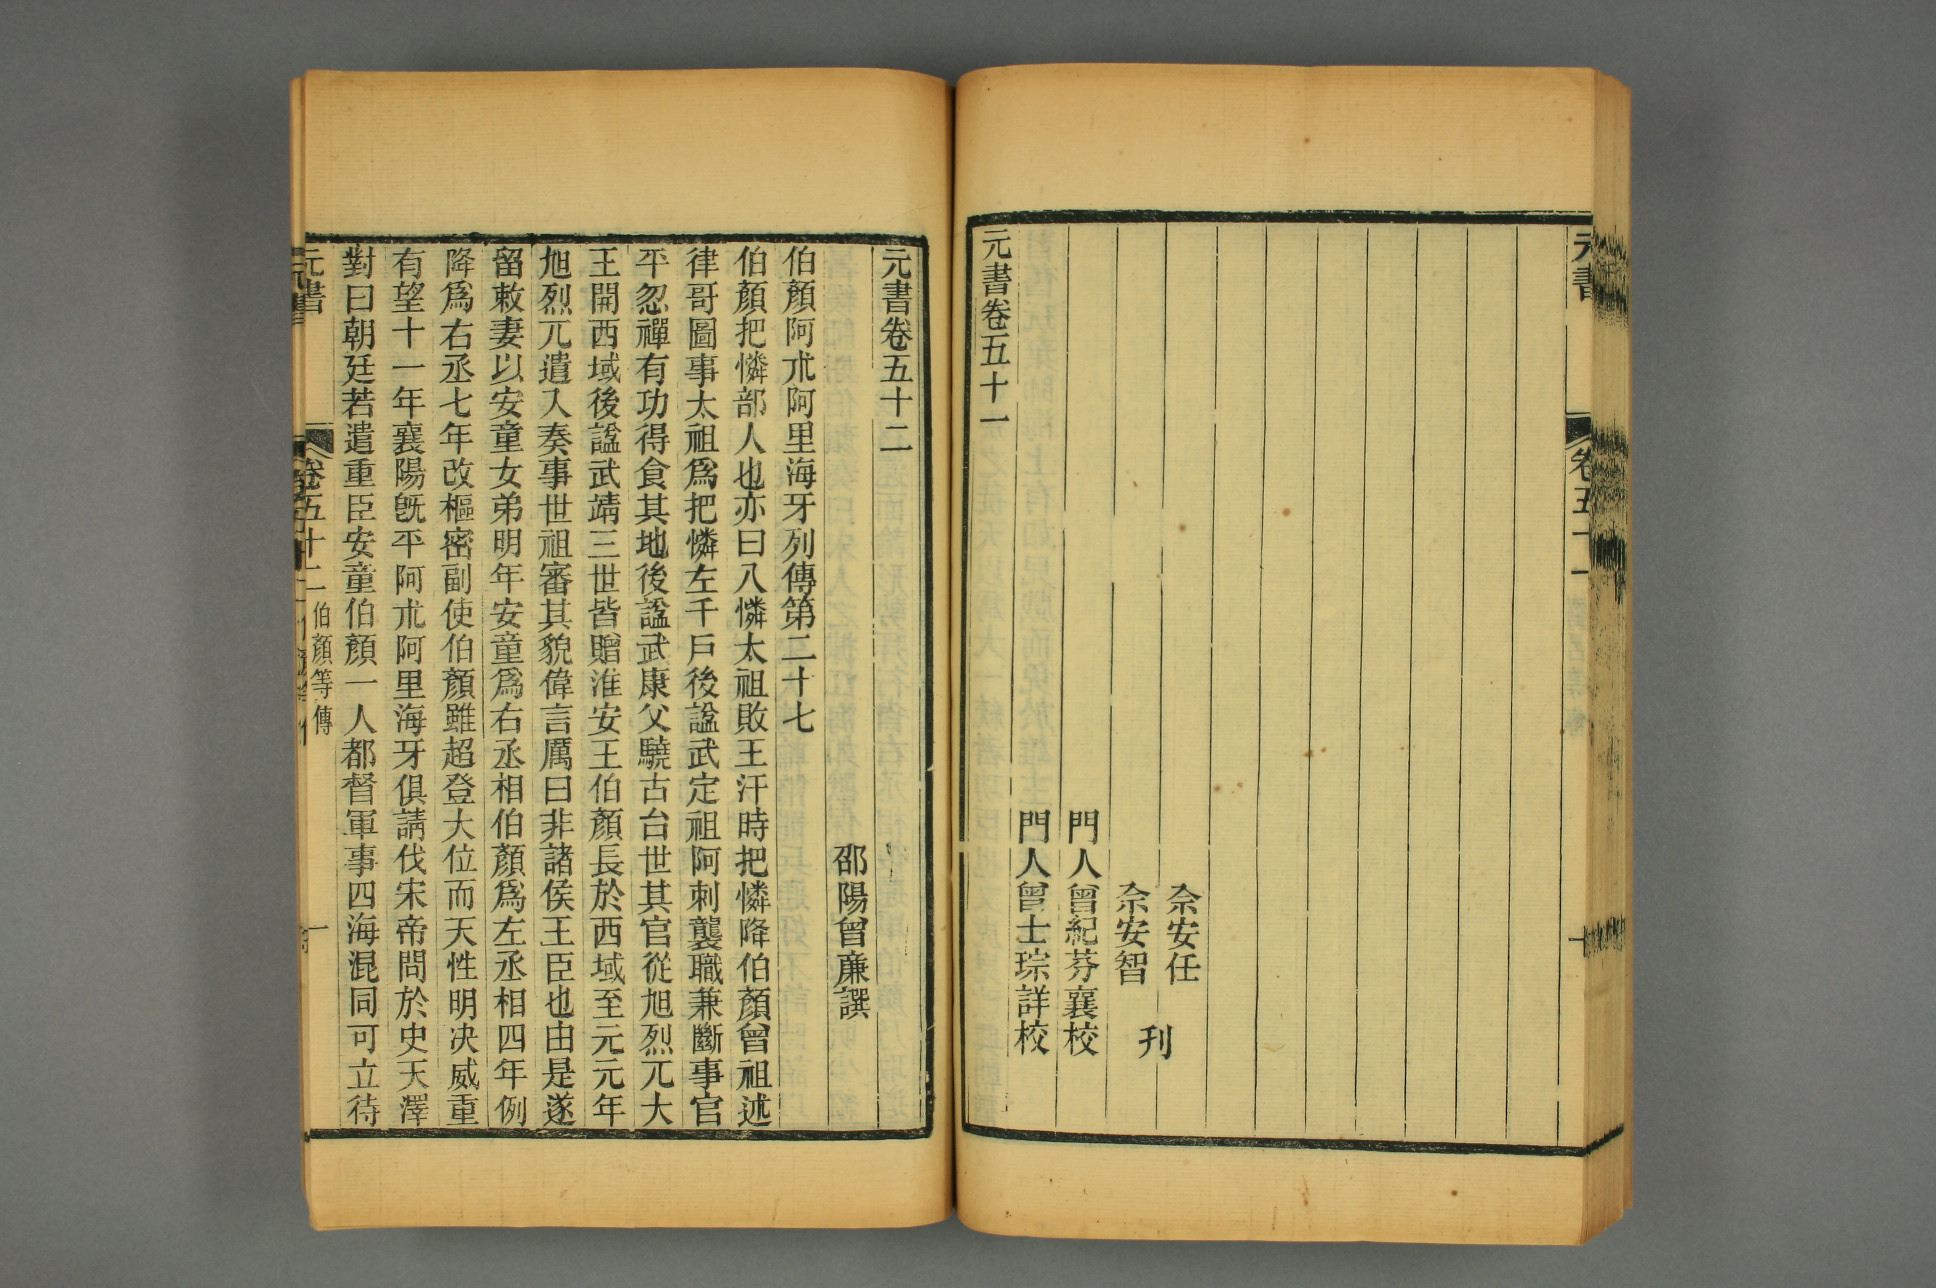 元書
卷五十一
十
佘安任
刊
佘安智
門人曾紀芬襄校
門人曾士琮詳校
元書卷五十一
元書卷五十二
邵陽曾廉譔
伯顏阿朮阿里海牙列傳第二十七
伯顏把憐部人也亦曰八憐太祖敗王汗時把憐降伯顏曾祖述
律哥圖事太祖爲把憐左千戶後諡武定祖阿刺襲職兼斷事官
平忽禪有功得食其地後諡武康父驍古台世其官從旭烈兀大
王開西域後諡武靖三世皆贈淮安王伯顏長於西域至元元年
旭烈兀遣入奏事世祖審其貌偉言厲曰非諸侯王臣也由是遂
留敕妻以安童女弟明年安童爲右丞相伯顏爲左丞相四年例
降爲右丞七年改樞密副使伯顏雖超登大位而天性明决威重
有望十一年襄陽旣平阿朮阿里海牙俱請伐宋帝問於史天澤
對曰朝廷若遣重臣安童伯顏一人都督軍事四海混同可立待
元書
卷五十二
伯顏等傳
一